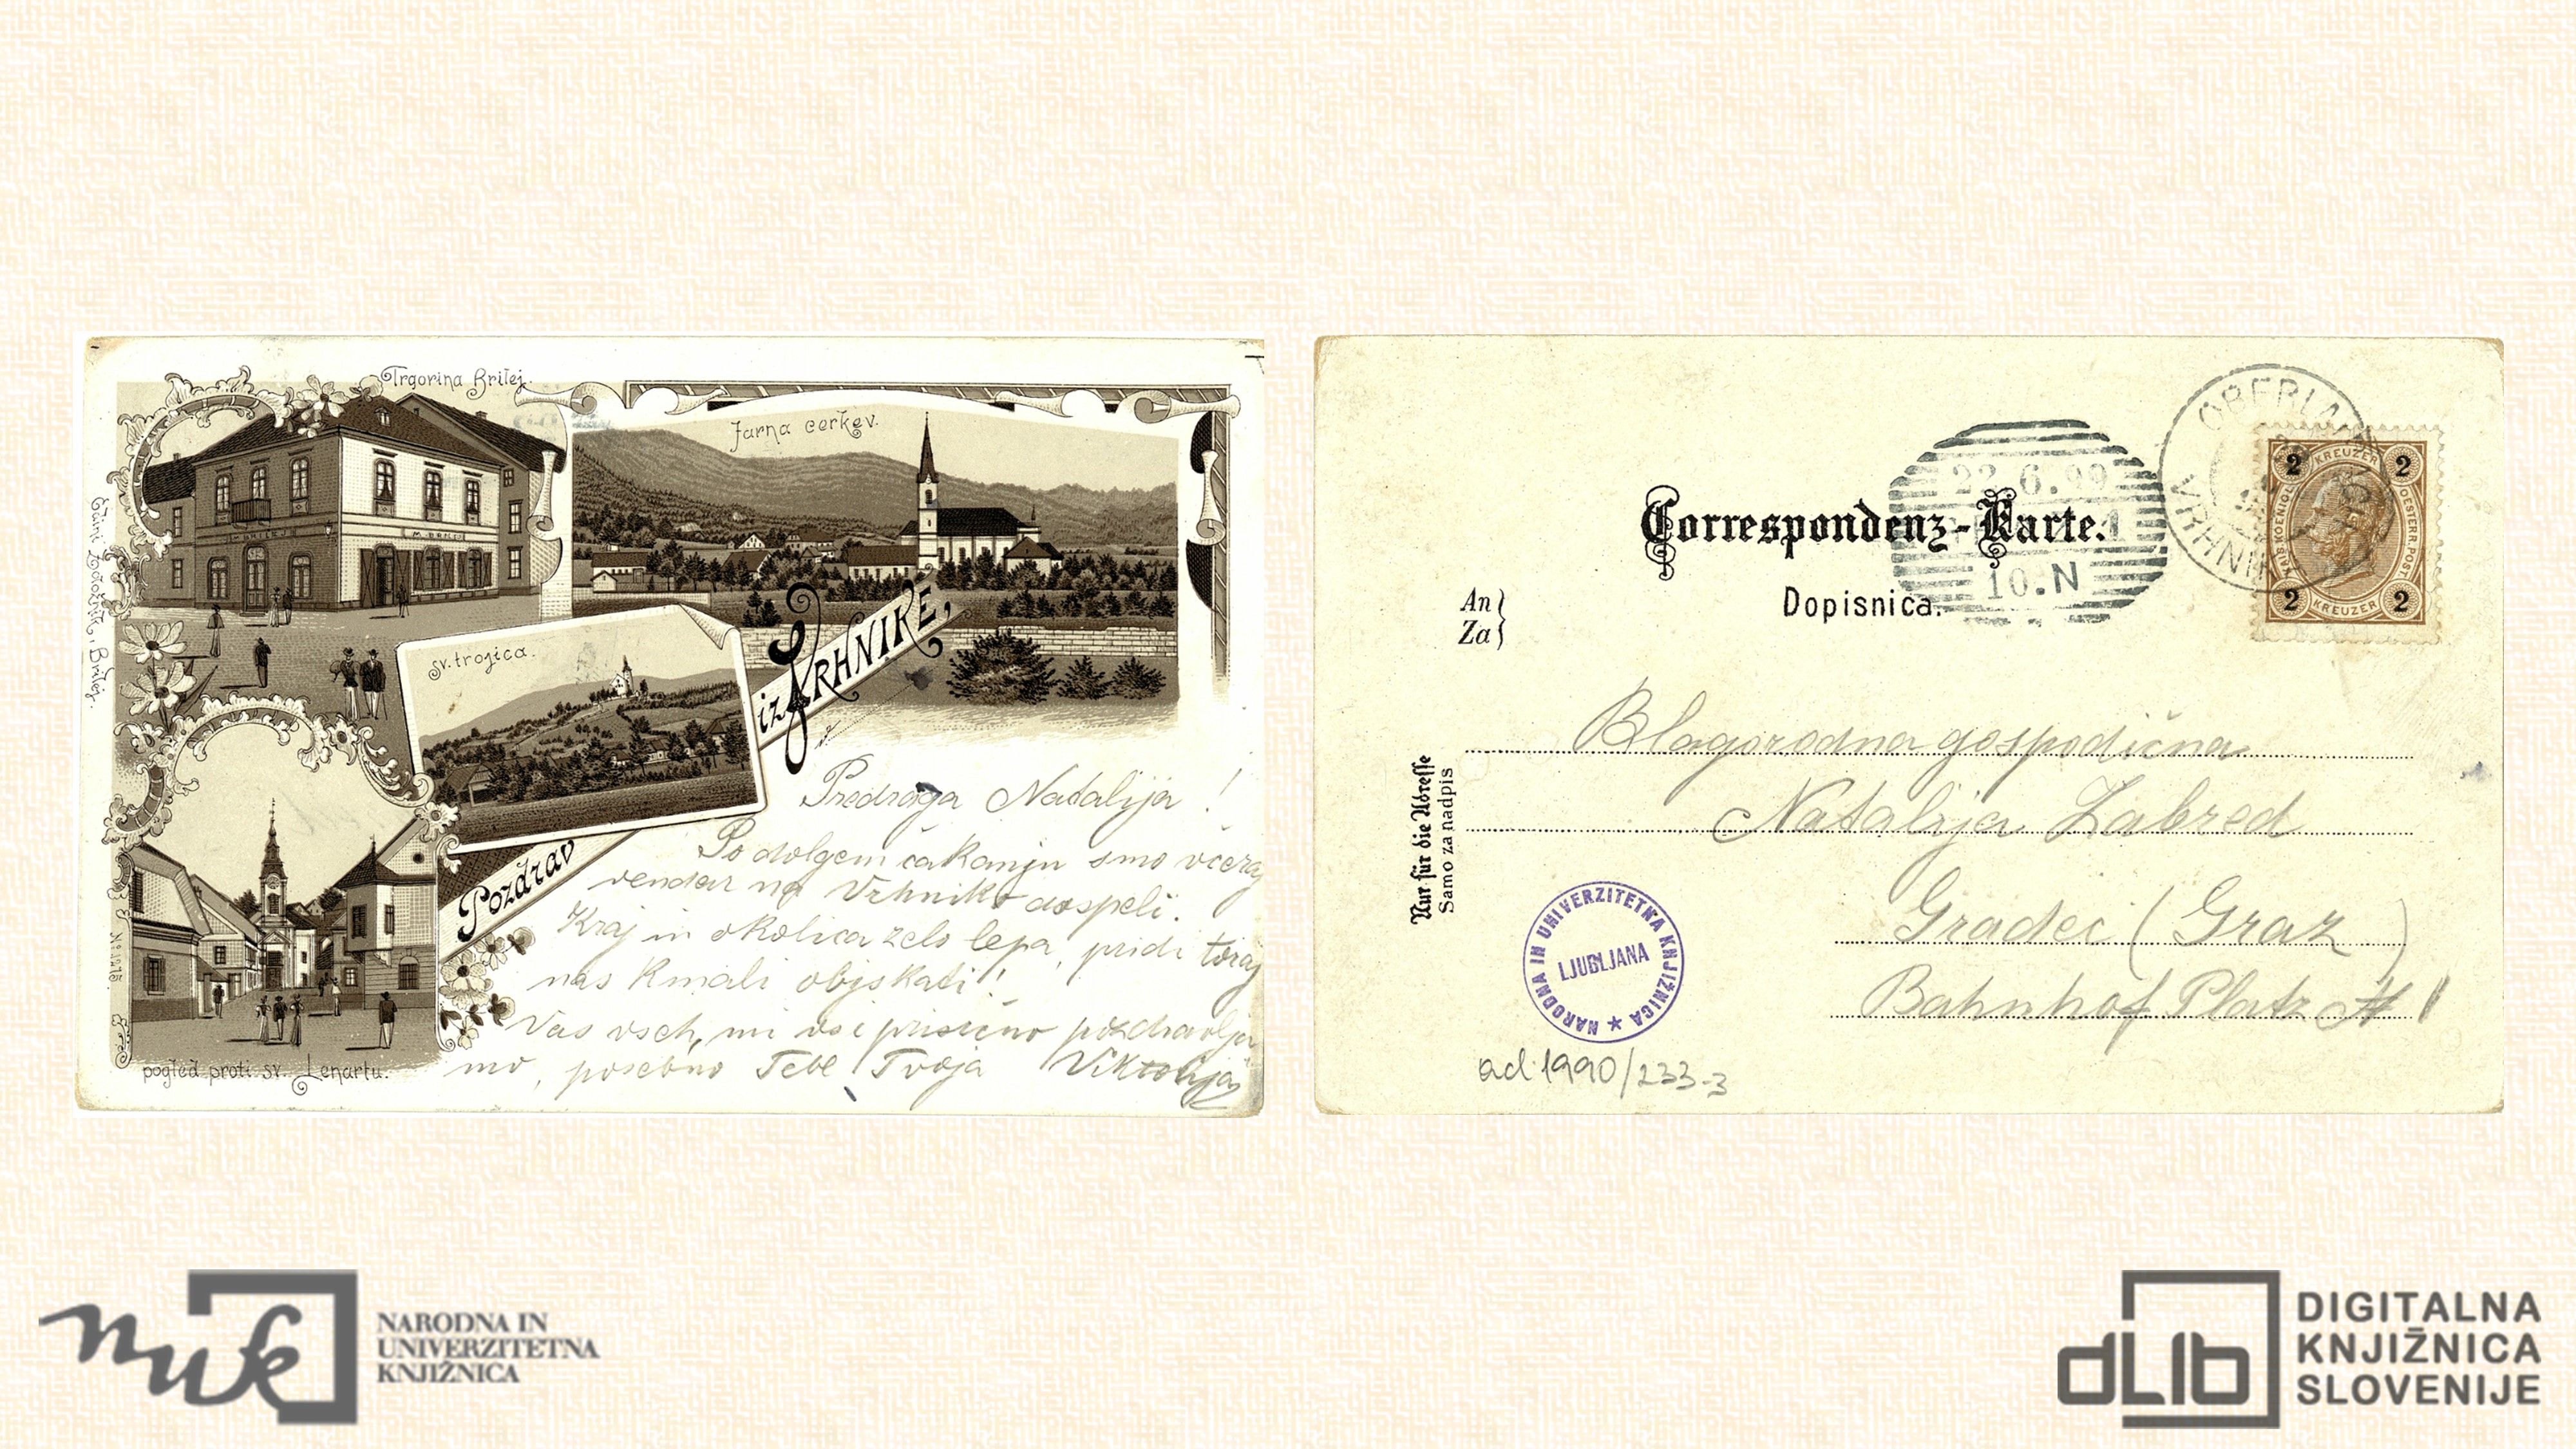 Trgovina Brilej.
Farna cerkev.
sv. trojica.
Pozdrav
iz VRHNIKE,
pogled proti sv. Lenartu.
Brilej.
Predraga Natalija!
Po dolgem čakanju smo včeraj
vendar na Vrhniko dospeli.
Kraj in okolica zelo lepa, pridi toraj
nas kmali objskati!
Vas vseh, mi vsi prisrčno pozdravlja
mo, posebno Tebe Tvoja Viktorija
Correspondenz-Karte.
Dopisnica.
An
Za
Nur für die Adresse
Samo za nadpis
22.6.99
10.N
OBERLAIBACH
VRHNIKA
2 KREUZER 2
KAIS. KOENIGL. OESTERR. POST
2 KREUZER 2
Blagorodna gospodična
Natalija Zabred
Gradec (Graz)
Bahnhof Platz № 1
NARODNA IN UNIVERZITETNA KNJIŽNICA
LJUBLJANA
ad 1990/233-3
nuk
NARODNA IN
UNIVERZITETNA
KNJIŽNICA
dLib
DIGITALNA
KNJIŽNICA
SLOVENIJE